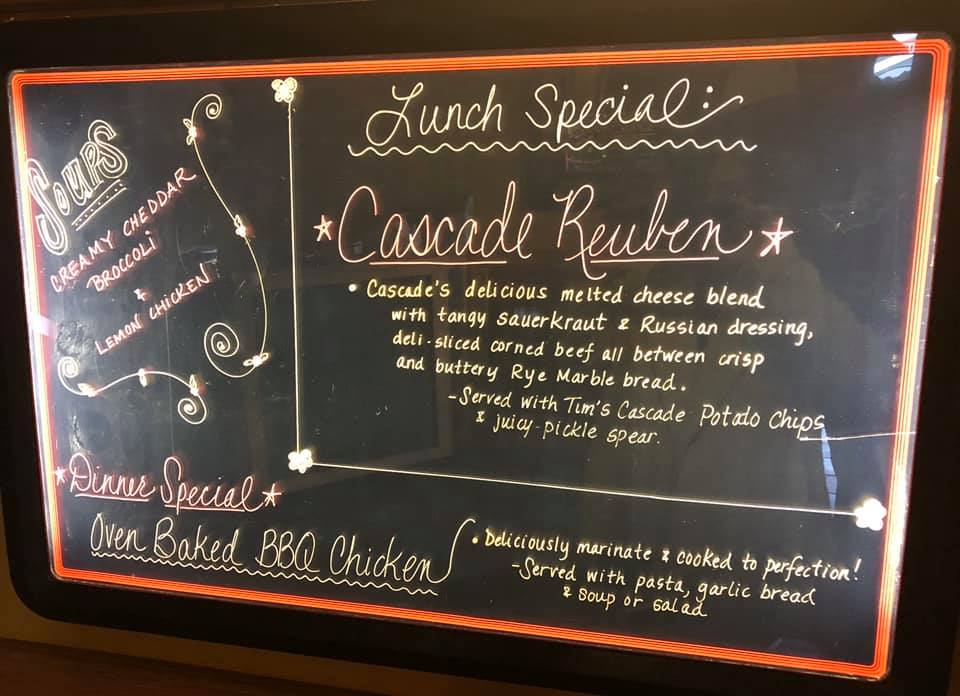 SOUPS
CREAMY CHEDDAR
BROCCOLI
&
LEMON CHICKEN
Lunch Special:
Cascade Reuben
• Cascade's delicious melted cheese blend
with tangy sauerkraut & Russian dressing,
deli-sliced corned beef all between crisp
and buttery Rye Marble bread.
-Served with Tim's Cascade Potato Chips
& juicy-pickle spear.
Dinner Special
Oven Baked BBQ Chicken
• Deliciously marinate & cooked to perfection!
-Served with pasta, garlic bread
& soup or salad